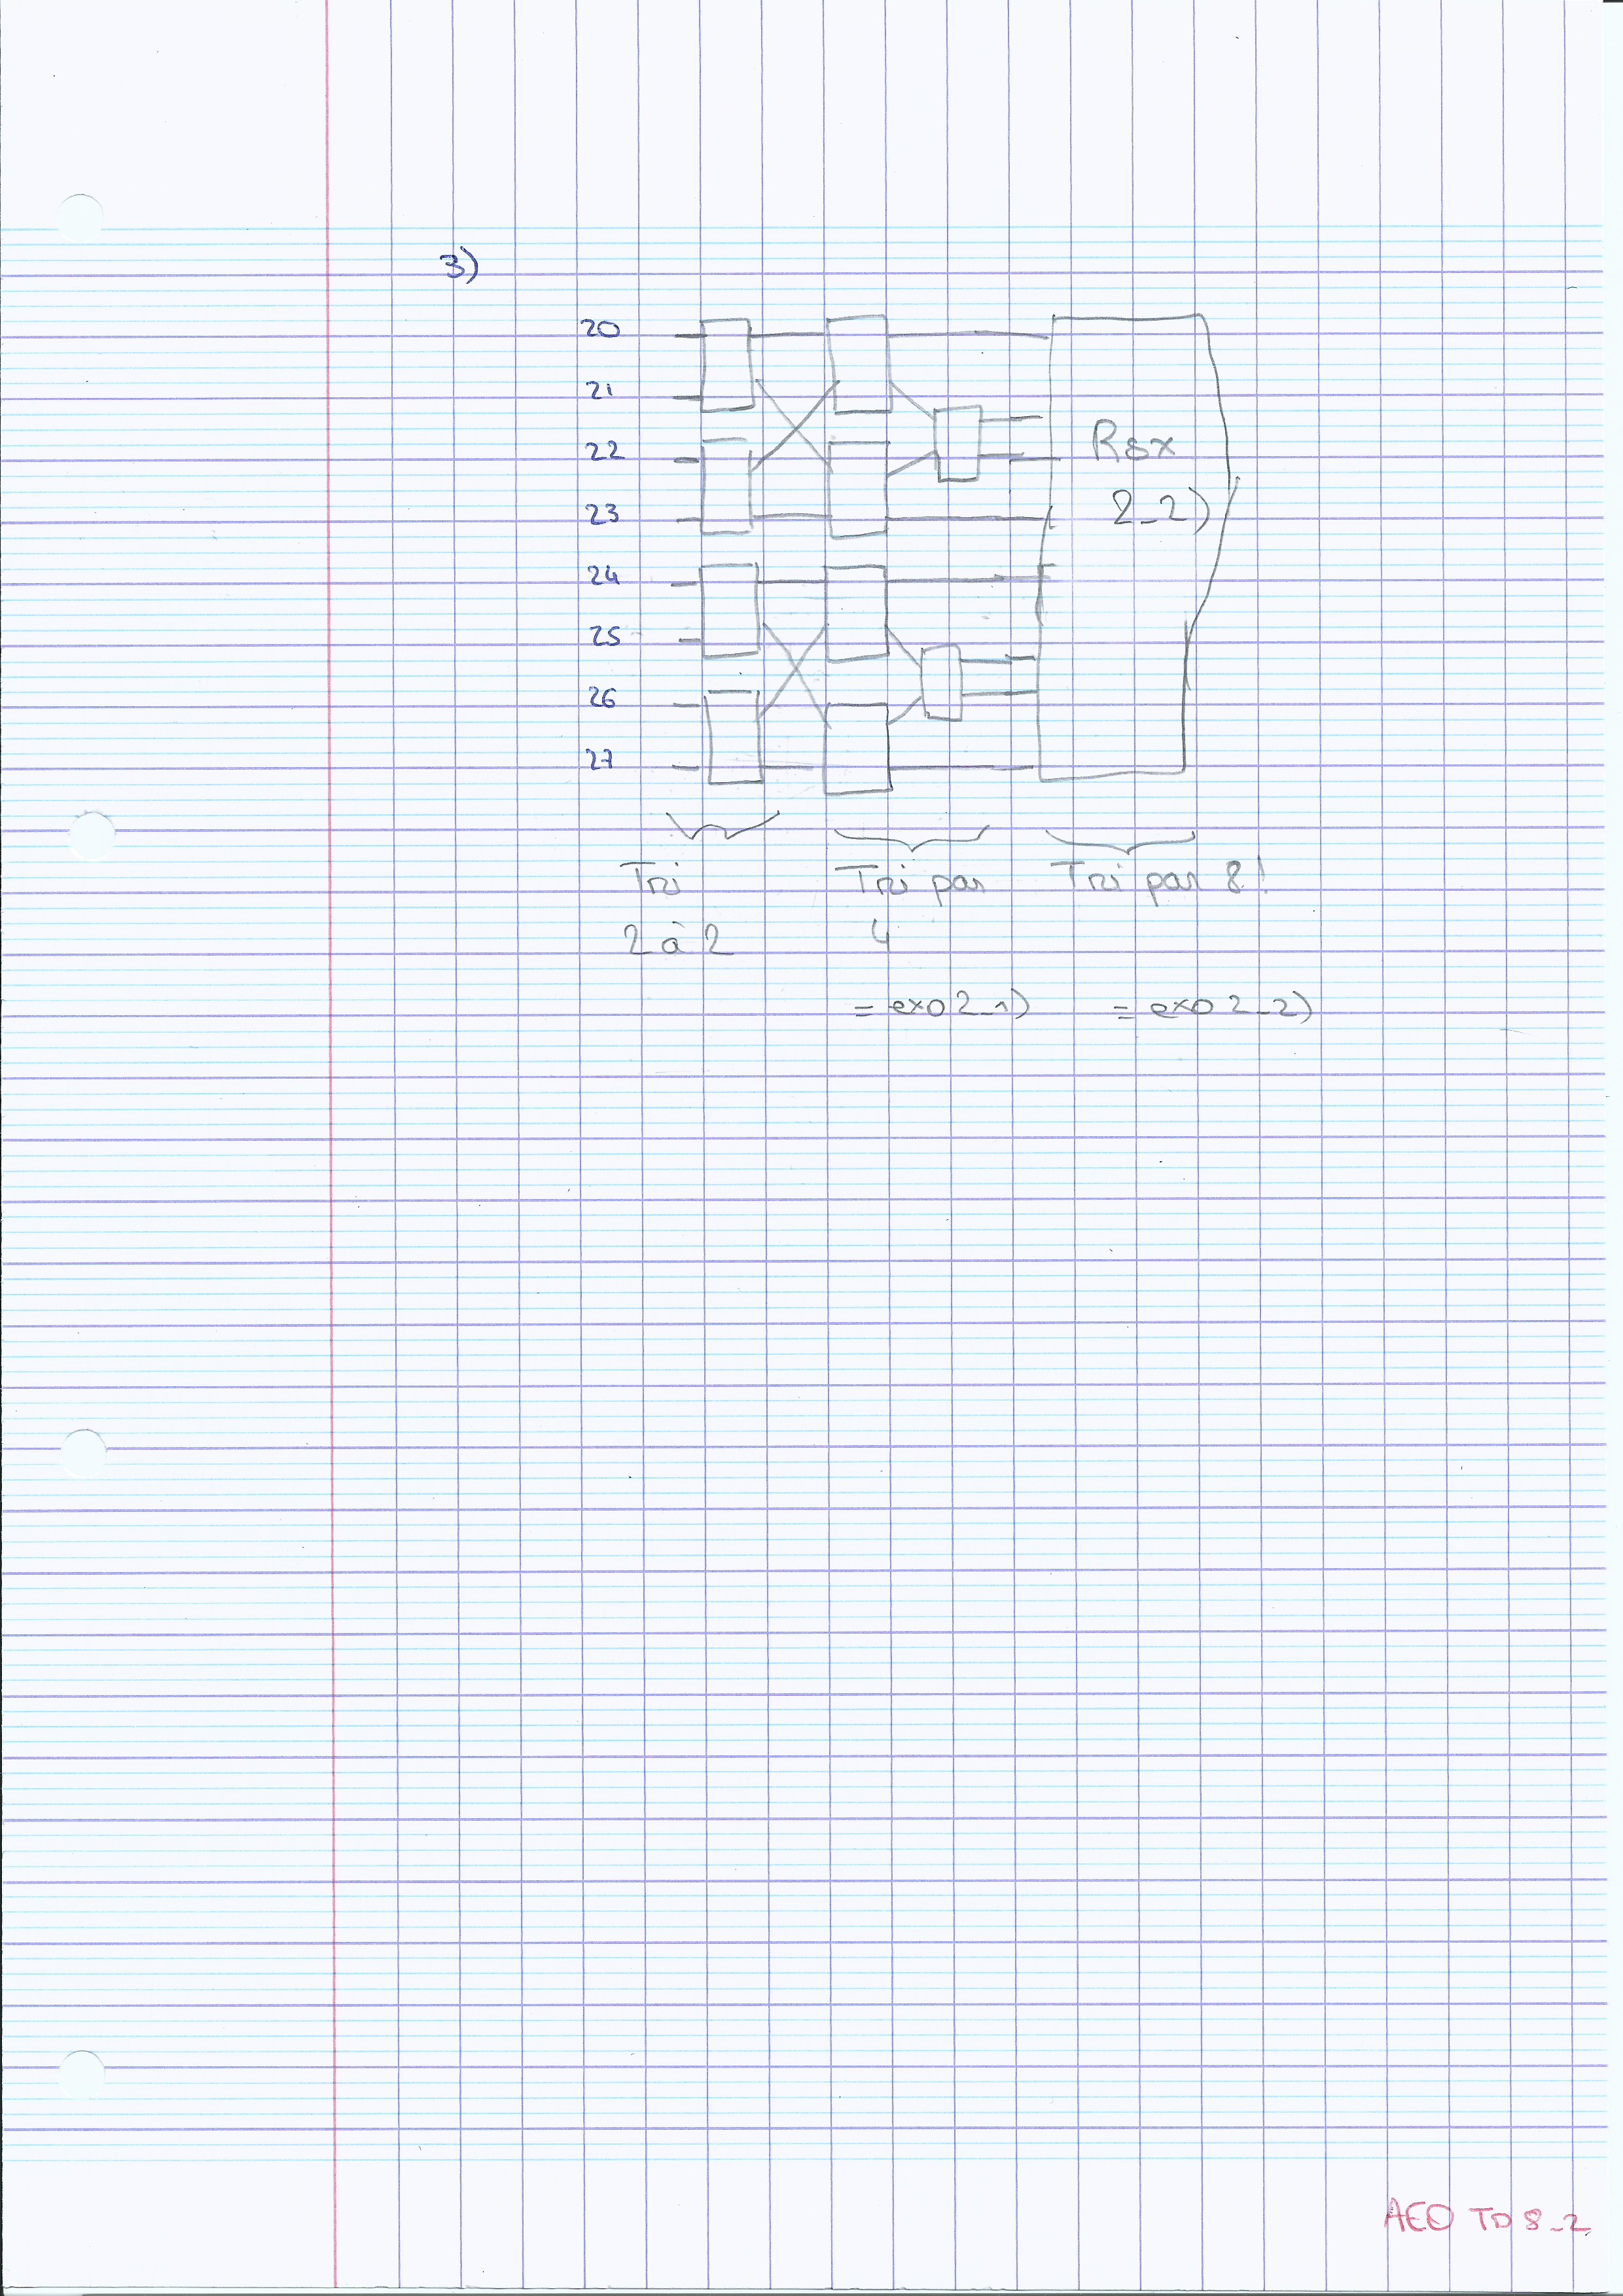 3)
20
21
22
23
24
25
26
27
Rsx
2_2)
Tri
2 à 2
Tri par
4
Tri par 8!
= exo 2_1)
= exo 2_2)
AEO TD 8_2